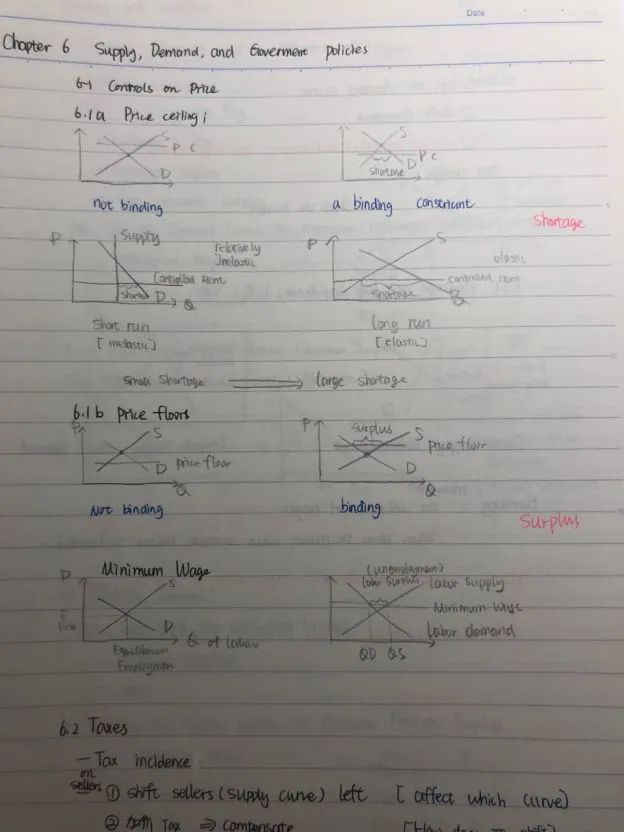 Date
Chapter 6 Supply, Demand, and Goverment policies
6.1 Controls on Price
6.1a Price ceiling ;
S
P C
D
not binding
S
P C
D
shortage
a binding constraint
Shortage
P
Supply
relatively
Inelastic
Controlled Rent
D
Q
short run
[ inelastic]
P
S
elastic
controlled rent
shortage
D
Q
long run
[ elastic]
small shortage ⟹ large shortage
6.1b Price floors
P
S
price floor
D
Q
Not binding
P
surplus
S
price floor
D
Q
binding
Surplus
Minimum Wage
P
S
D
Q of labour
Equilibrium
(unemployment)
labor surplus
labor supply
Minimum wage
labor demand
QD QS
6.2 Taxes
— Tax incidence
on
sellers
① shift sellers (supply curve) left [ affect which curve]
② Tax ⇒ compensate